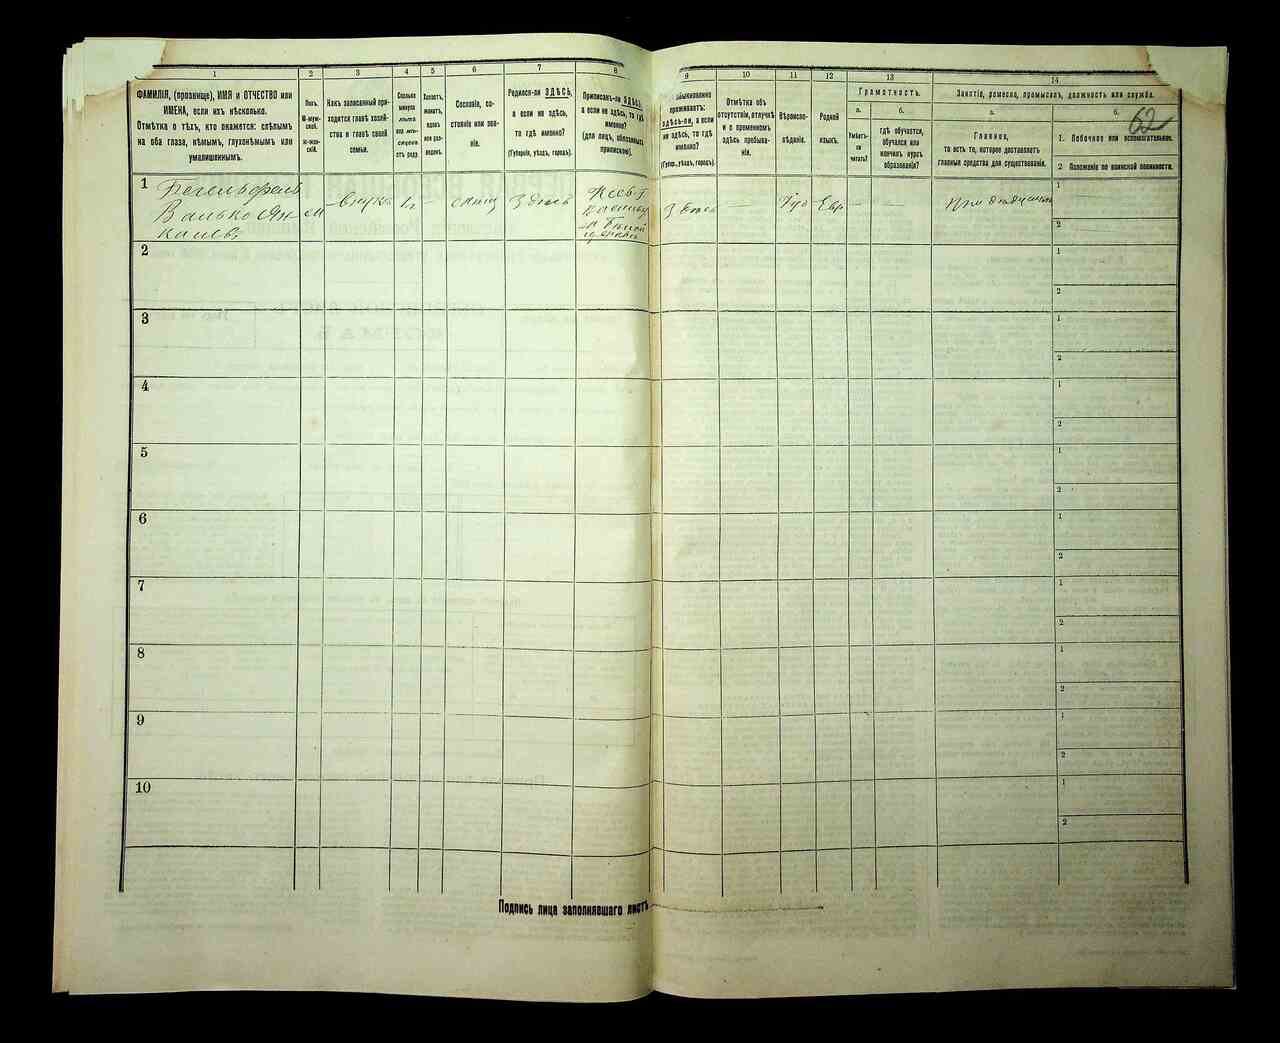 1
2
3
4
5
6
7
8
ФАМИЛІЯ, (прозвище), ИМЯ и ОТЧЕСТВО или
ИМЕНА, если ихъ нѣсколько.
Отмѣтка о тѣхъ, кто окажется: слѣпымъ
на оба глаза, нѣмымъ, глухонѣмымъ или
умалишеннымъ.
Полъ.
М-муж-
ской.
Ж-жен-
скій.
Какъ записанный при-
ходится главѣ хозяй-
ства и главѣ своей
семьи.
Сколько
минуло
лѣтъ
или мѣся-
цевъ
отъ роду.
Холостъ,
женатъ,
вдовъ
или раз-
веденъ.
Сословіе, со-
стояніе или зва-
ніе.
Родился-ли ЗДѢСЬ,
а если не здѣсь,
то гдѣ именно?
(Губернія, уѣздъ, городъ).
Приписанъ-ли ЗДѢСЬ,
а если не здѣсь, то гдѣ
именно?
(для лицъ, обязанныхъ
припискою).
1
внука
1 г
Здесь
2
3
4
5
6
7
8
9
10
Подпись лица заполнявшаго листъ
9
10
11
12
13
14
62
Обыкновенно
проживаетъ:
здѣсь-ли, а если
не здѣсь, то гдѣ
именно?
(Губер., уѣздъ, городъ).
Отмѣтка объ
отсутствіи, отлучкѣ
и о временномъ
здѣсь пребыва-
ніи.
Вѣроиспо-
вѣданіе.
Родной
языкъ.
Грамотность.
а.
б.
Умѣетъ-
ли
читать?
гдѣ обучается,
обучался или
кончилъ курсъ
образованія?
Занятіе, ремесло, промыселъ, должность или служба.
а.
б.
Главное,
то есть то, которое доставляетъ
главныя средства для существованія.
1. Побочное или вспомогательное.
2. Положеніе по воинской повинности.
Здесь
—
Іуд
Евр
—
—
1
2
1
2
1
2
1
2
1
2
1
2
1
2
1
2
1
2
1
2